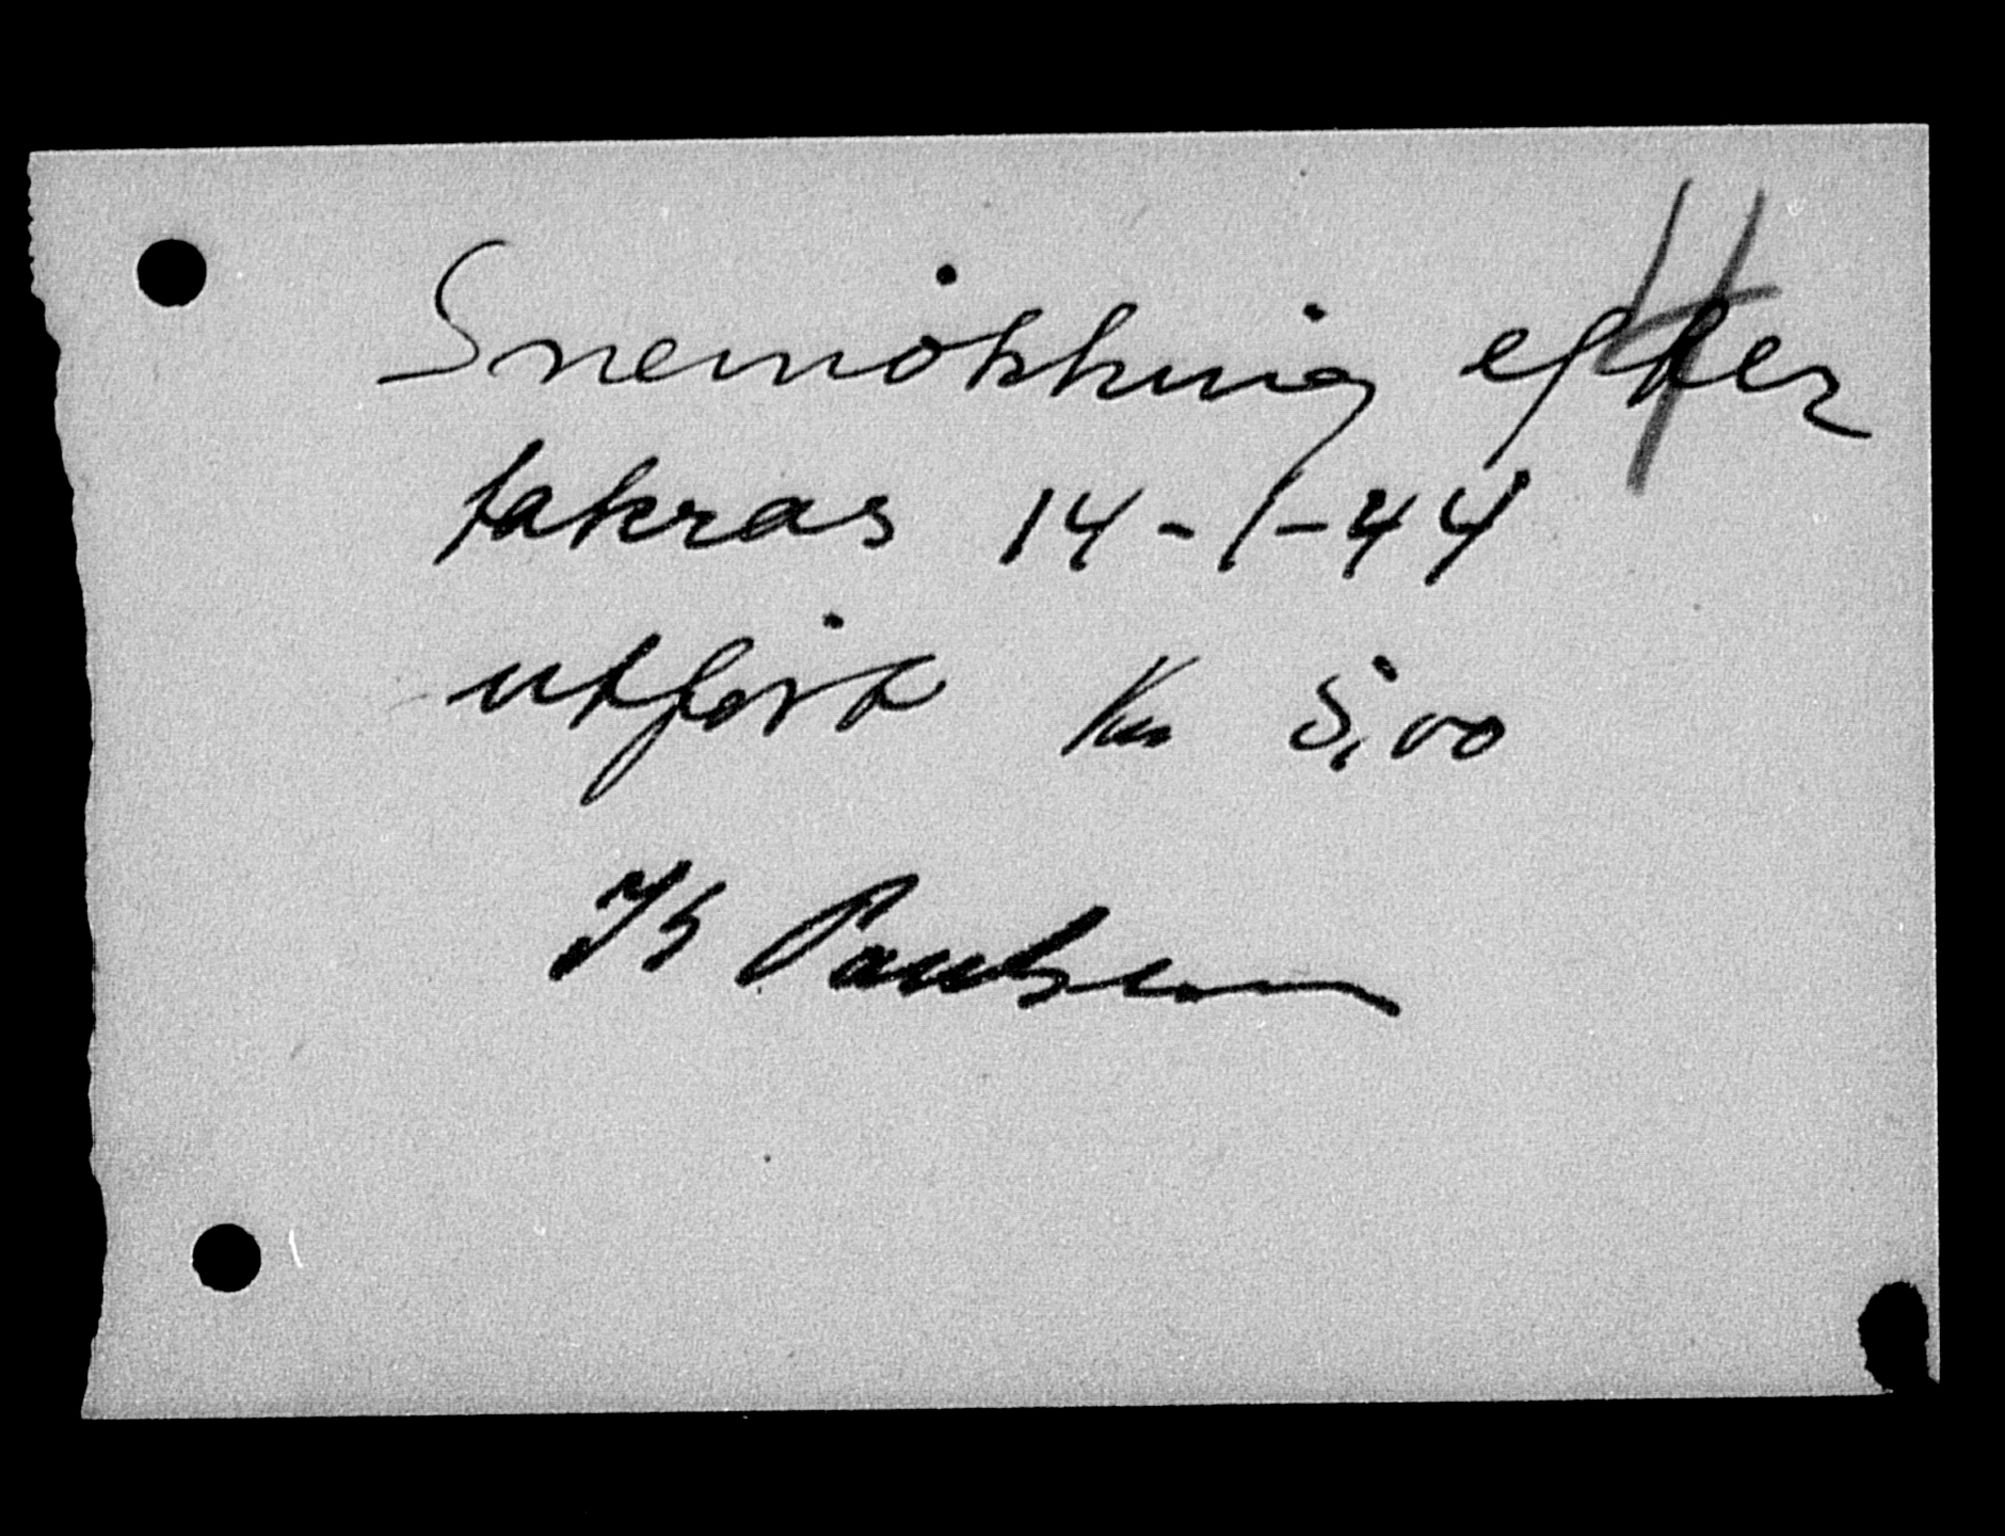 Snemokking efter
takras 14-1-44
utført Kr 5,00
Paulsen